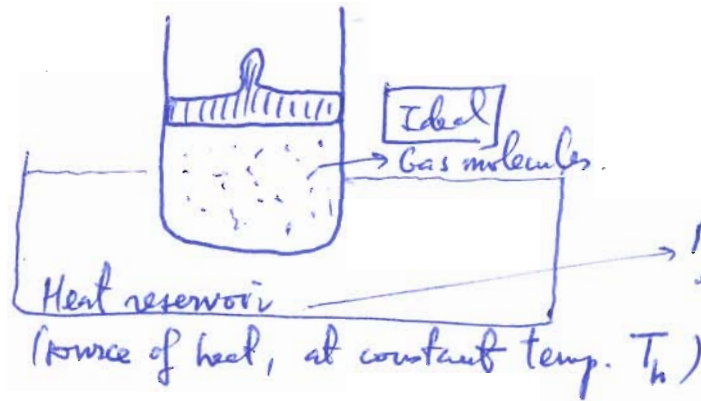 Ideal
Gas molecules.
Heat reservoir
(source of heat, at constant temp. T_h)